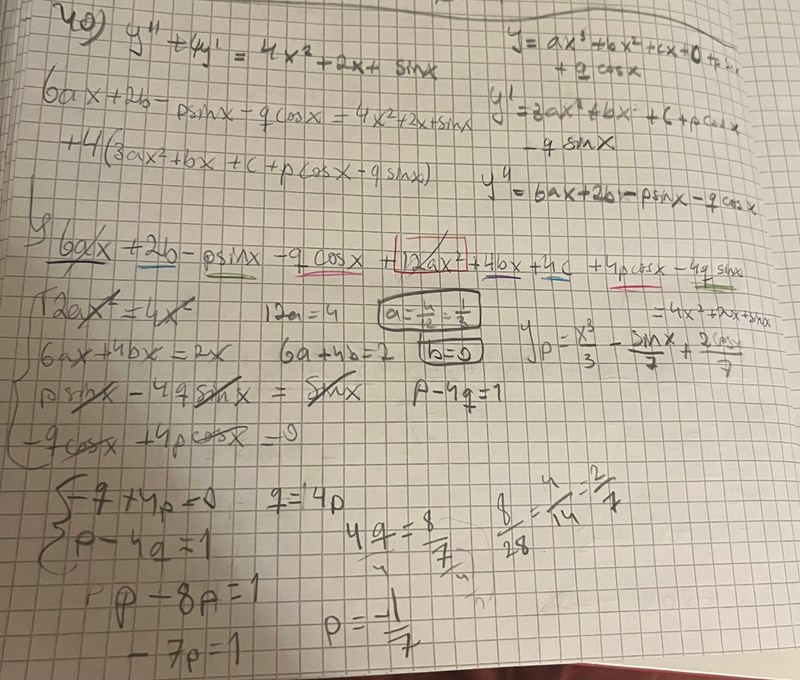 40) y'' + 4y' = 4x² + 2x + sinx
y = ax³ + bx² + cx + D + psinx
+ q cosx
6ax + 2b - psinx - q cosx = 4x² + 2x + sinx
+ 4(3ax² + bx + c + p cosx - q sinx)
y' = 3ax² + bx + c + p cosx
- q sinx
y'' = 6ax + 2b - psinx - q cosx
6ax + 2b - psinx - q cosx + 12ax² + 4bx + 4c + 4pcosx - 4q sinx
= 4x² + 2x + sinx
12ax² = 4x² 12a = 4 a = 4/12 = 1/3
6ax + 4bx = 2x 6a + 4b = 2 b = 0
yp = x³/3 - sinx/7 + 2cosx/7
p sinx - 4q sinx = sinx p - 4q = 1
-q cosx + 4p cosx = 0
-q + 4p = 0 q = 4p
p - 4q = 1
4q/4 = 8/7/4
8/28 = 4/14 = 2/7
p - 8p = 1
p = -1/7
- 7p = 1